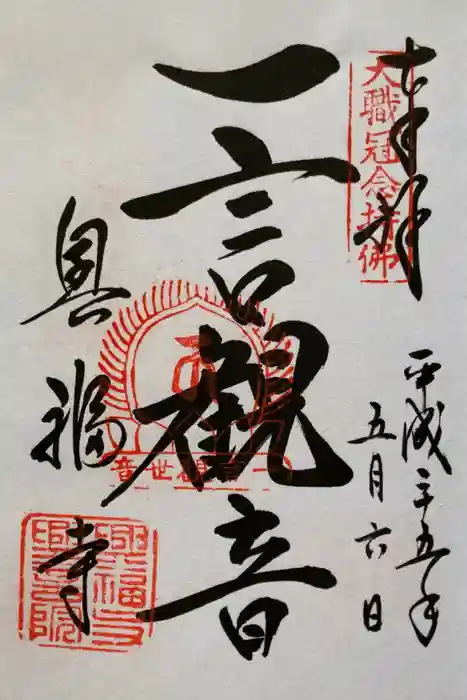 奉拝
大職冠念持佛
平成二五年
五月六日
一言観音
一言観世音
興福寺